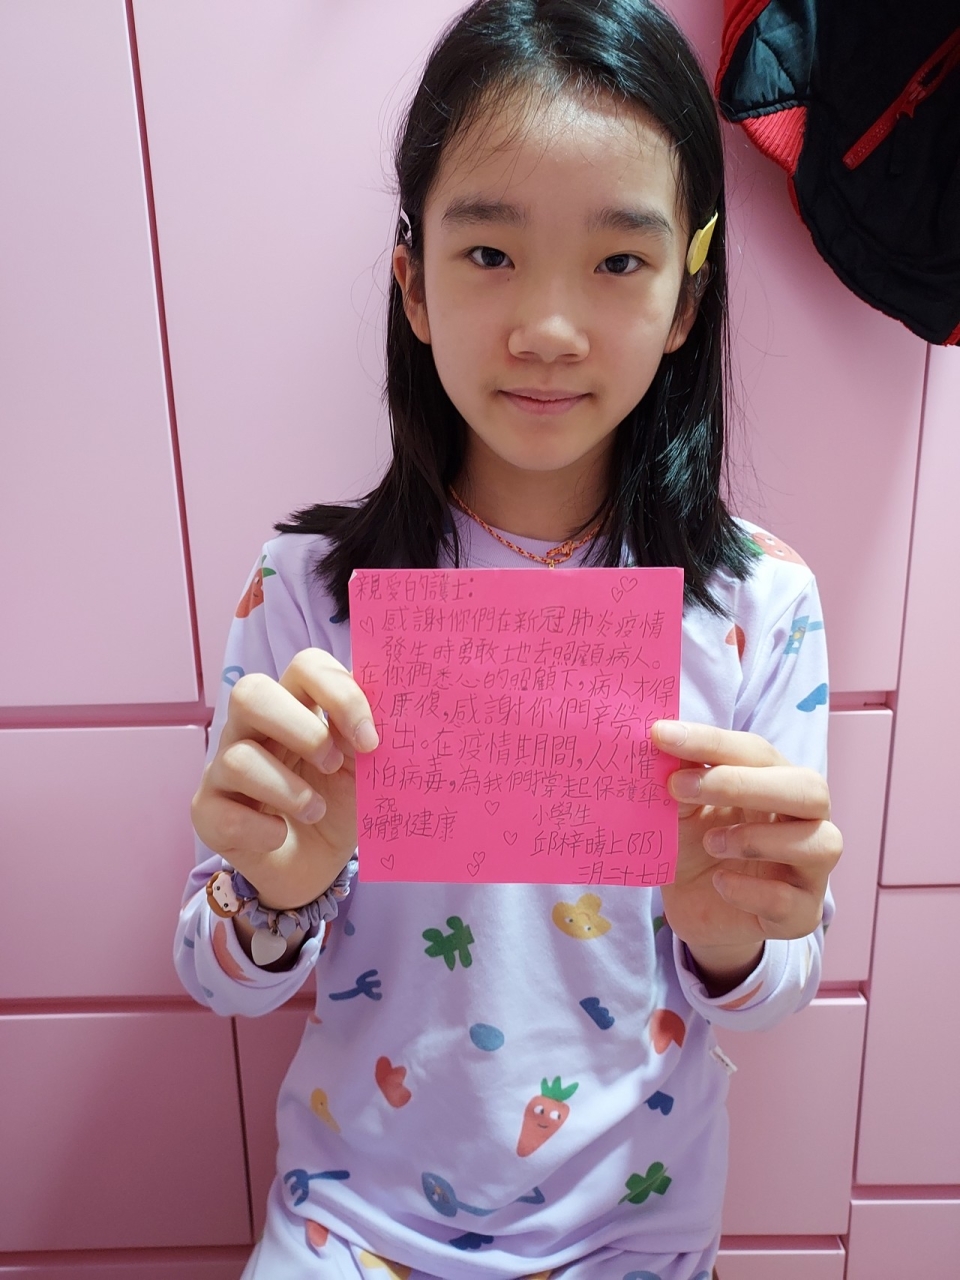 親愛的護士:
感謝你們在新冠肺炎疫情
發生時勇敢地去照顧病人。
在你們悉心的照顧下,病人才得
以康復,感謝你們辛勞的
付出。在疫情期間,人人懼
怕病毒,為我們撐起保護傘。
祝
身體健康
小學生
邱梓晴上(5B)
三月二十七日